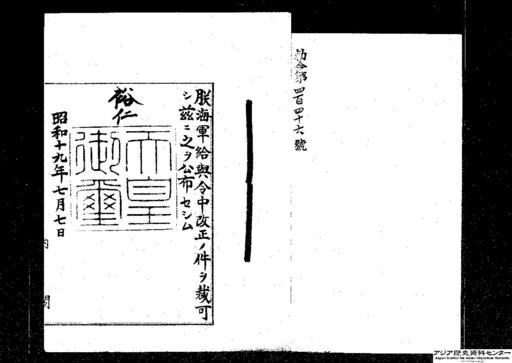 勅令第四百四十六號
朕海軍給與令中改正ノ件ヲ裁可
シ茲ニ之ヲ公布セシム
裕仁
天皇
御璽
昭和十九年七月七日
内閣
アジア歴史資料センター
Japan Center for Asian Historical Records